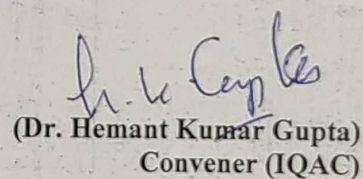 h.k Gupta
(Dr. Hemant Kumar Gupta)
Convener (IQAC)